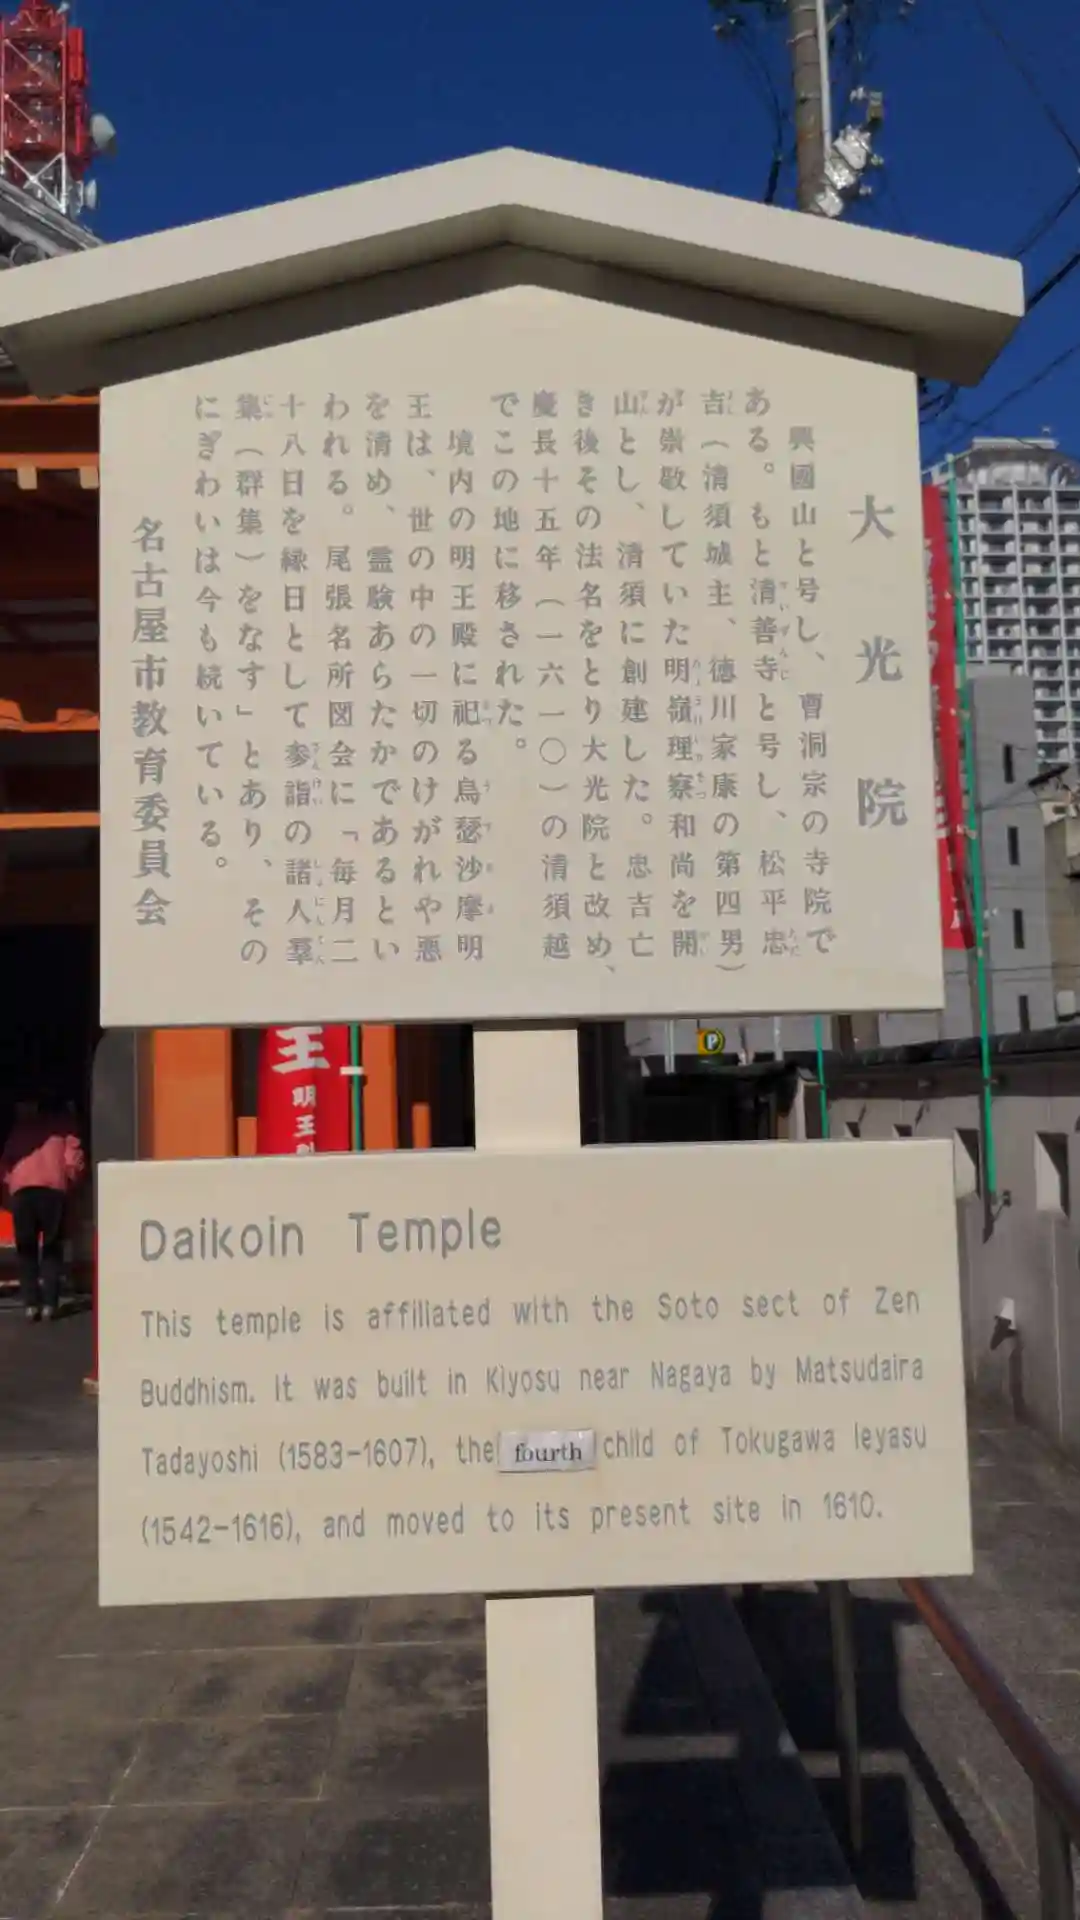 大光院
興國山と号し、曹洞宗の寺院で
ある。もと清善寺と号し、松平忠
吉(清須城主、徳川家康の第四男)
が崇敬していた明嶺理察和尚を開
山とし、清須に創建した。忠吉亡
き後その法名をとり大光院と改め、
慶長十五年(一六一〇)の清須越
でこの地に移された。
境内の明王殿に祀る烏瑟沙摩明
王は、世の中の一切のけがれや悪
を清め、霊験あらたかであるとい
われる。尾張名所図会に「毎月二
十八日を縁日として参詣の諸人羣
集(群集)をなす」とあり、その
にぎわいは今も続いている。
名古屋市教育委員会
王
明王
P
Daikoin Temple
This temple is affiliated with the Soto sect of Zen
Buddhism. It was built in Kiyosu near Nagaya by Matsudaira
Tadayoshi (1583-1607), the fourth child of Tokugawa Ieyasu
(1542-1616), and moved to its present site in 1610.